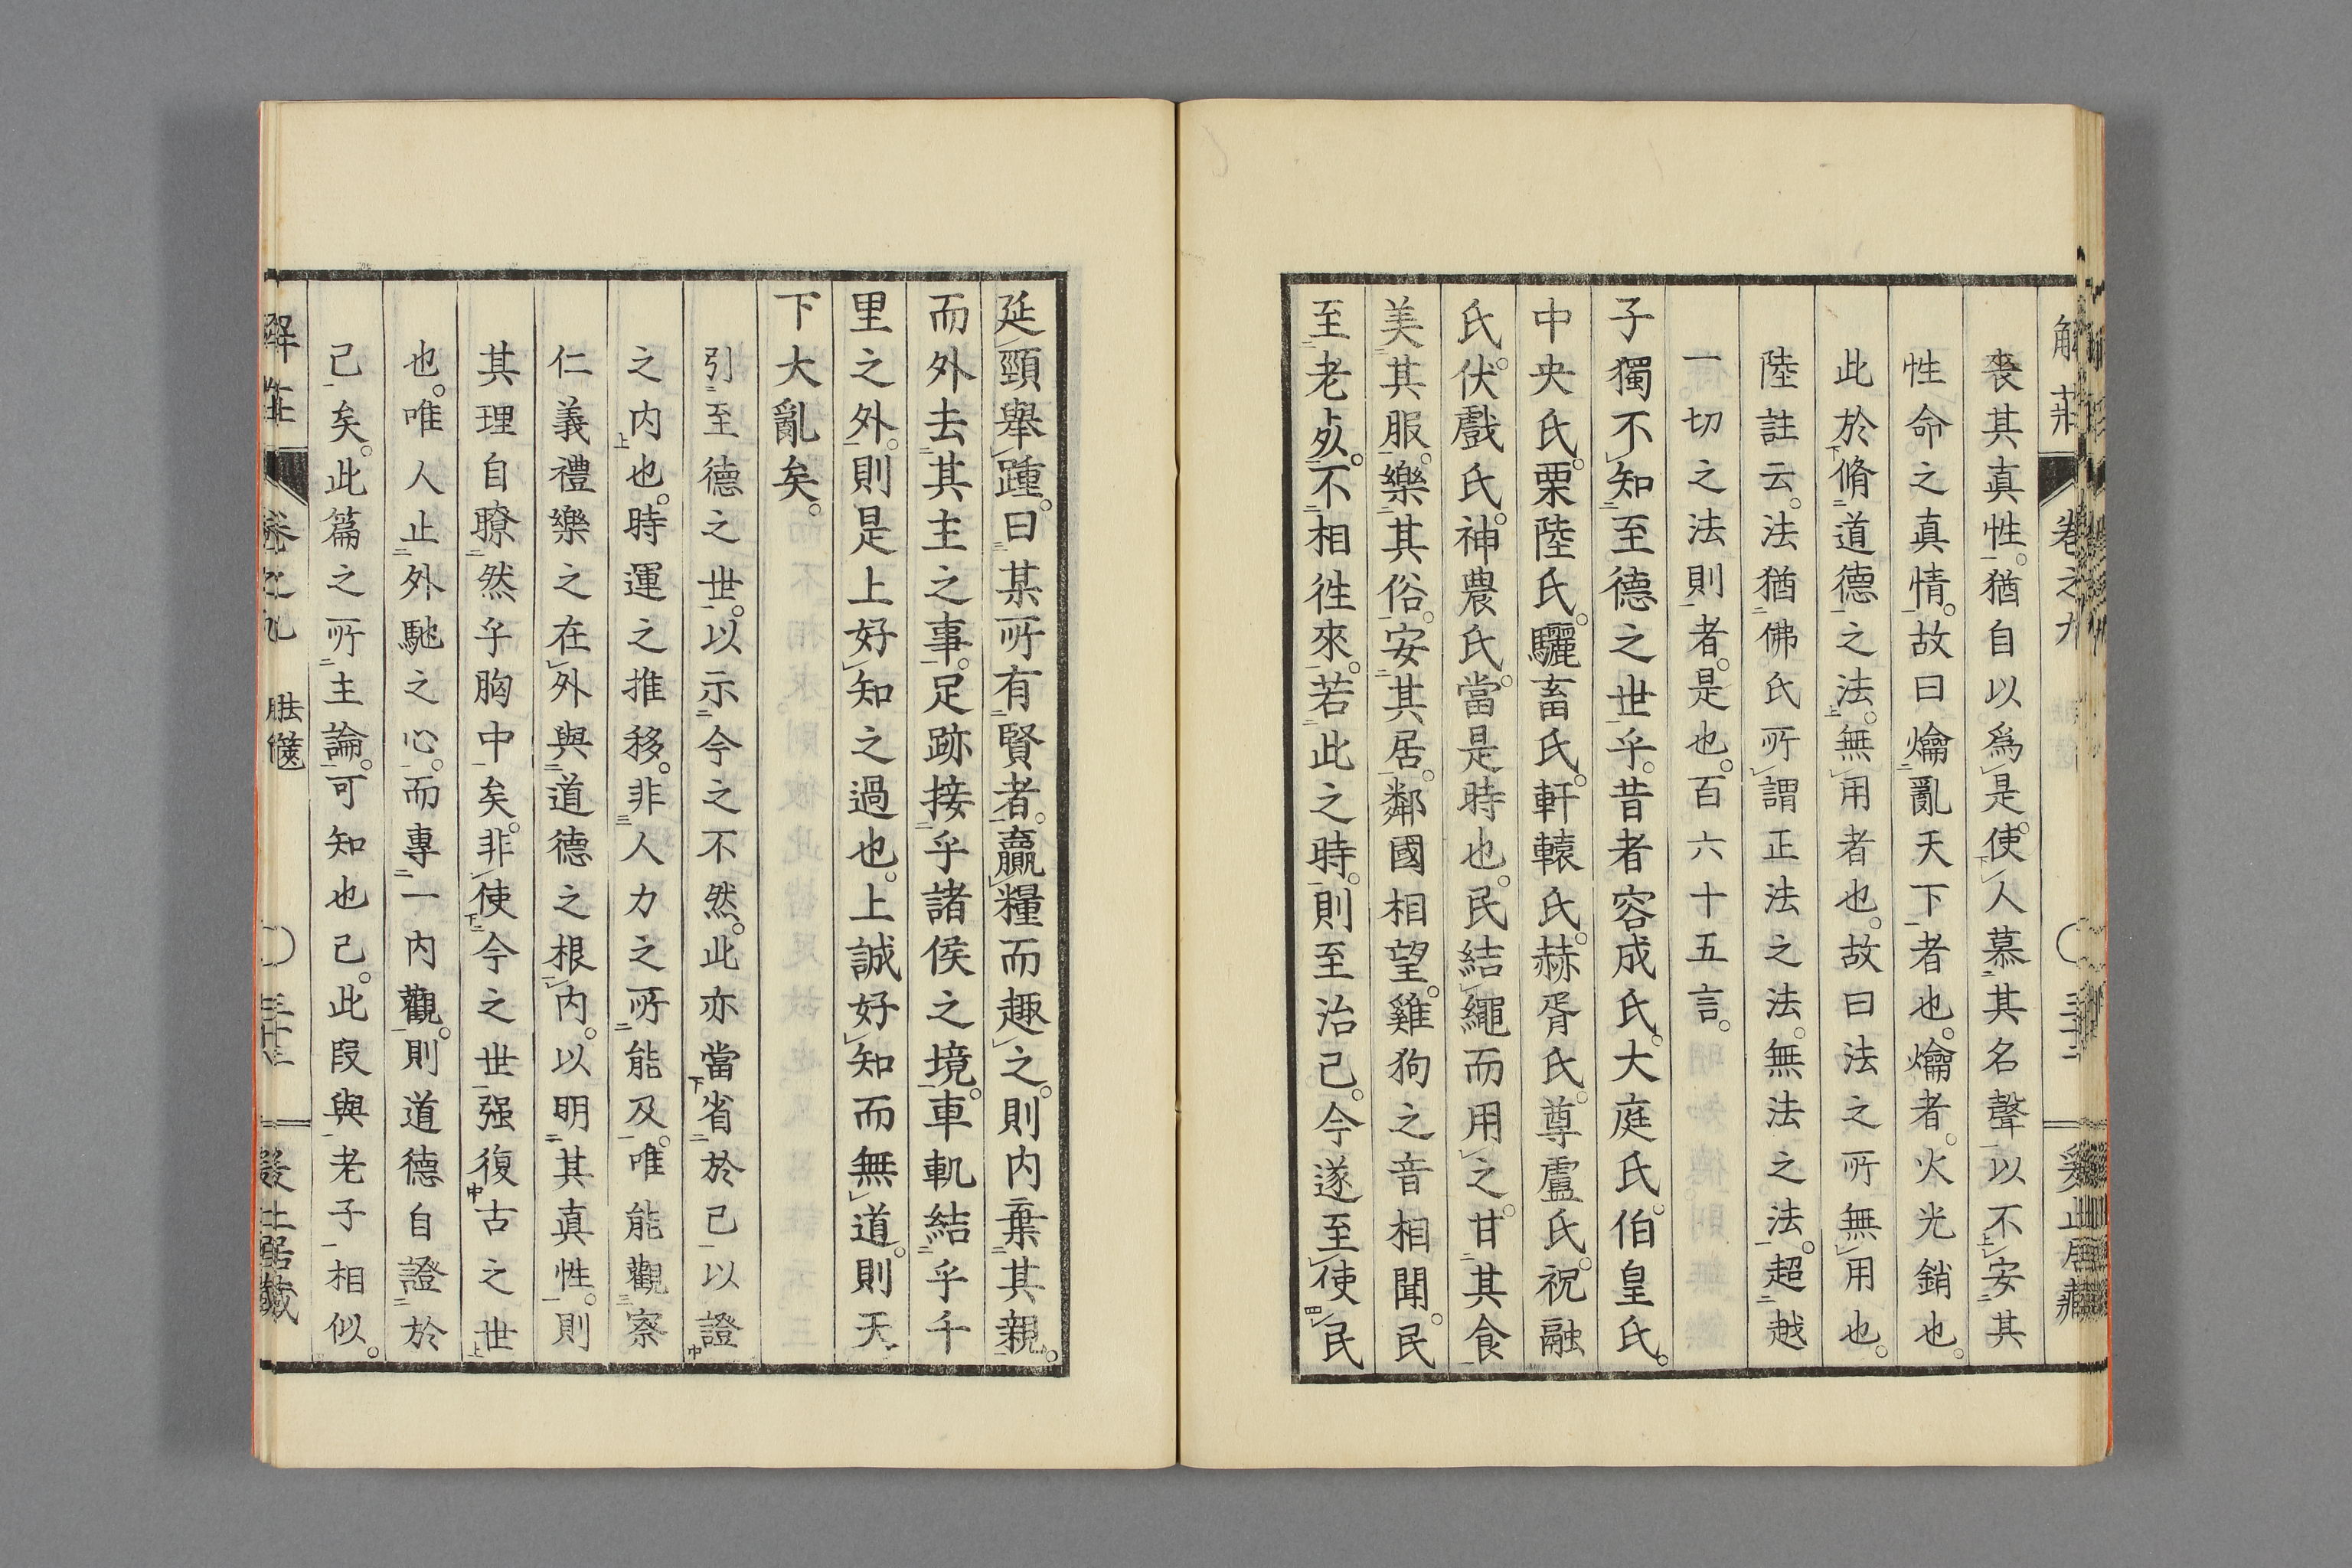 解莊 卷之九 三十二
喪其真性。猶自以爲是。使人慕其名聲以不安其
性命之真情。故曰爚亂天下者也。爚者。火光銷也。
此於脩道德之法。無用者也。故曰法之所無用也。
陸註云。法猶佛氏所謂正法之法。無法之法。超越
一切之法則者。是也。百六十五言。
子獨不知至德之世乎。昔者容成氏。大庭氏。伯皇氏。
中央氏。栗陸氏。驪畜氏。軒轅氏。赫胥氏。尊盧氏。祝融
氏。伏戲氏。神農氏。當是時也。民結繩而用之。甘其食
美其服。樂其俗。安其居。鄰國相望。雞狗之音相聞。民
至老死。不相徃來。若此之時。則至治已。今遂至使民
延頸舉踵。曰某所有賢者。贏糧而趣之。則内棄其親。
而外去其主之事。足跡接乎諸侯之境。車軌結乎千
里之外。則是上好知之過也。上誠好知而無道。則天
下大亂矣。
引至德之世。以示今之不然。此亦當省於己以證
之内也。時運之推移。非人力之所能及。唯能觀察
仁義禮樂之在外與道德之根内。以明其真性。則
其理自瞭然乎胸中矣。非使今之世强復古之世
也。唯人止外馳之心。而專一内觀。則道德自證於
己矣。此篇之所主論。可知也已。此段與老子相似。
解莊 卷之九 胠篋